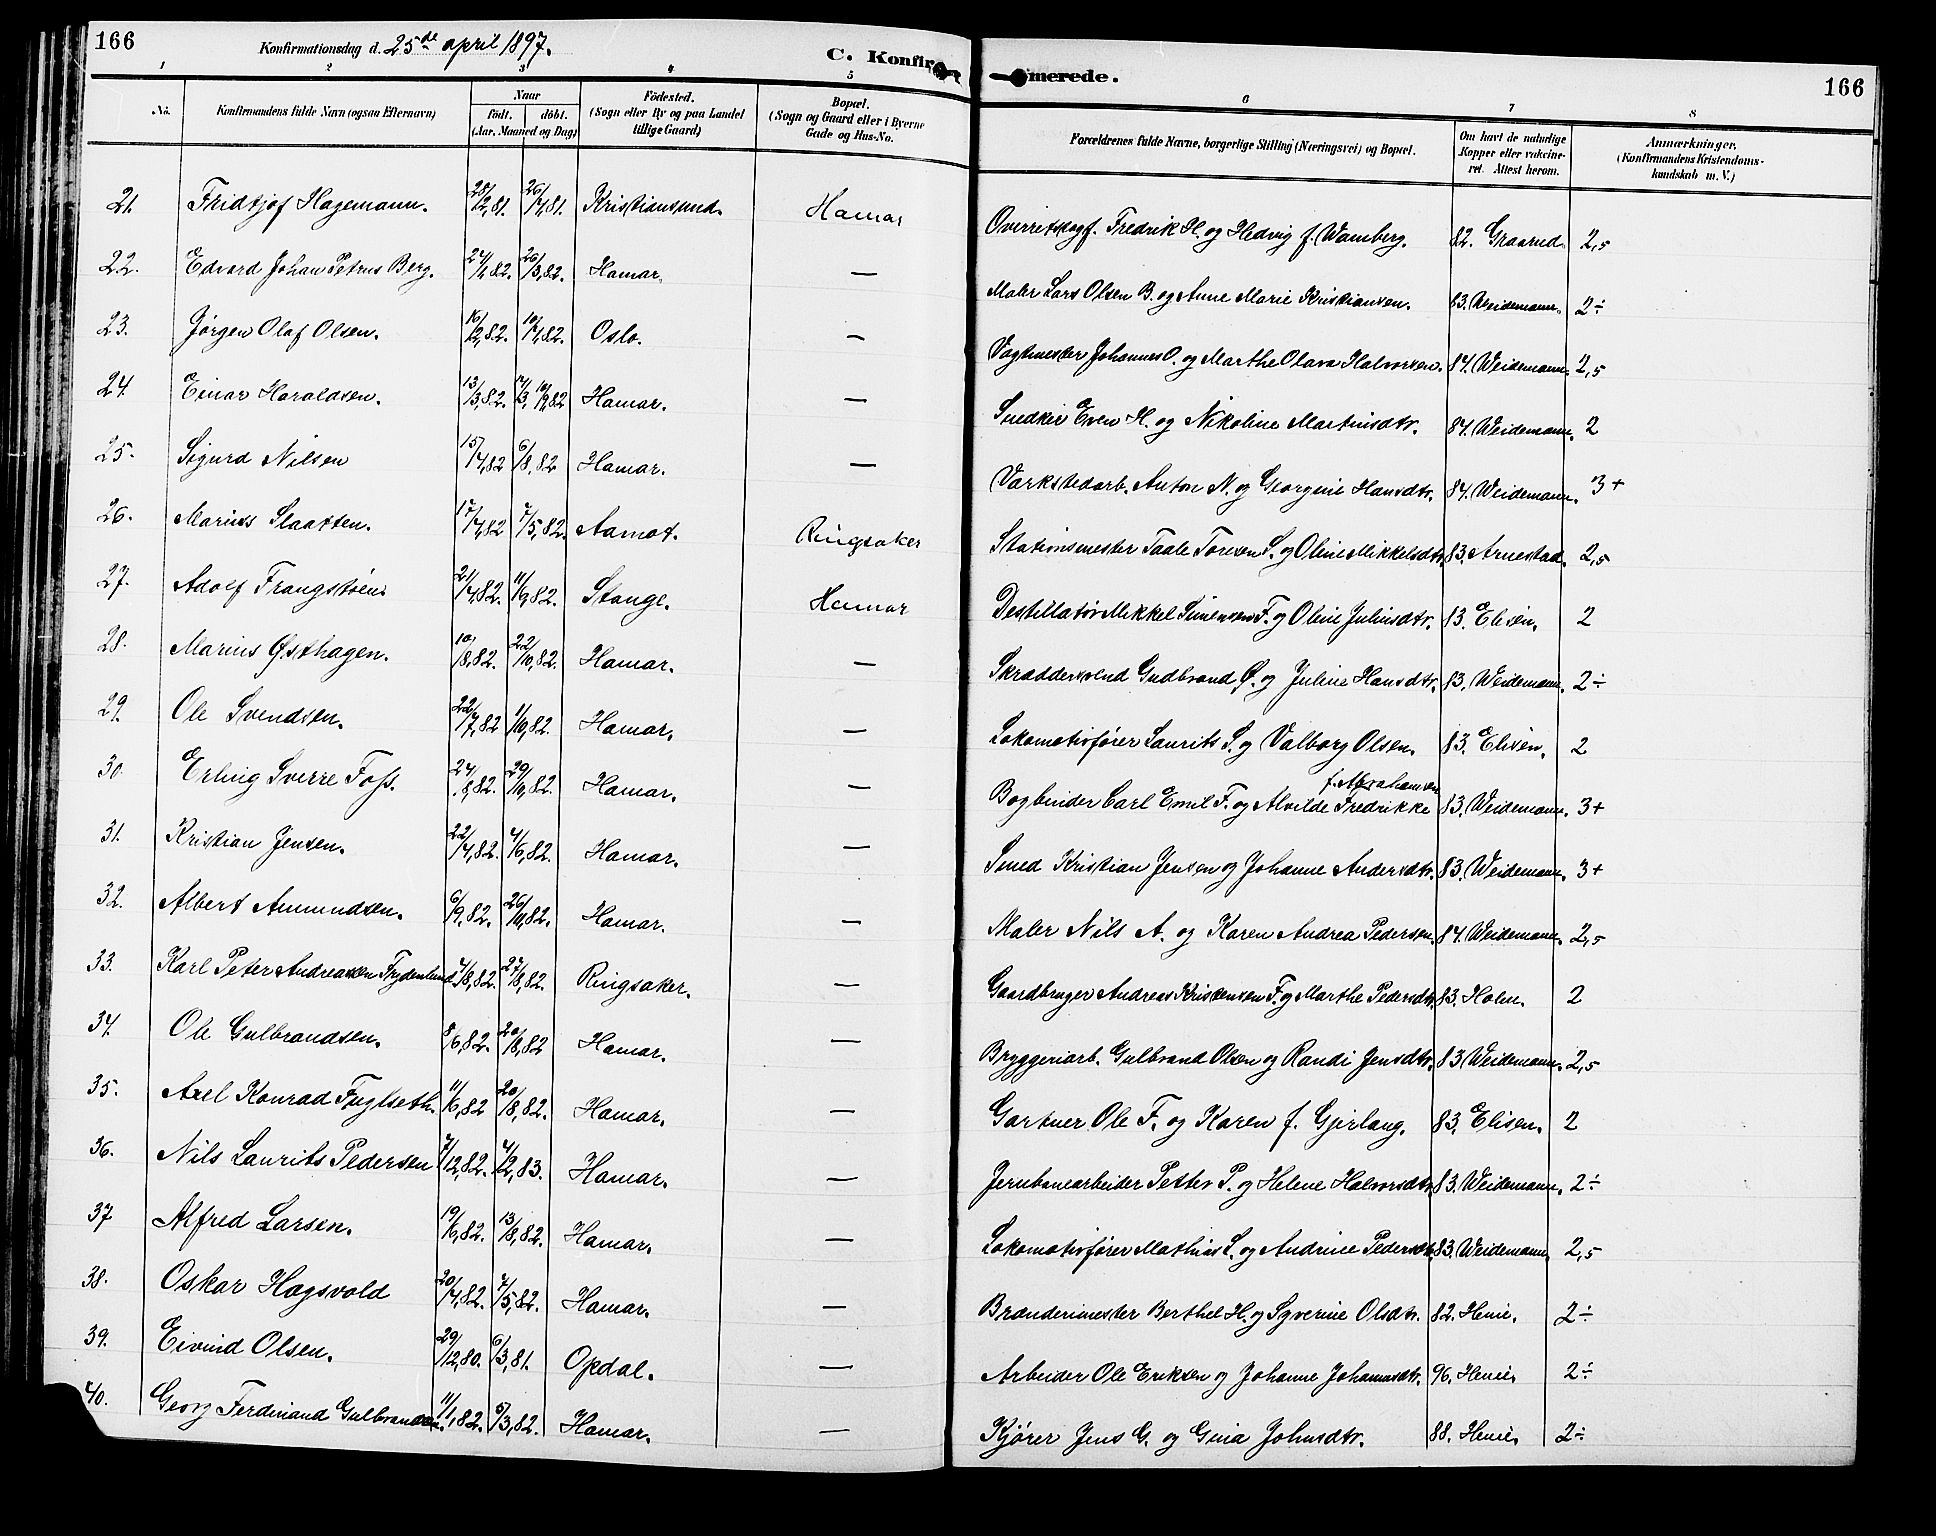 166 Konfirmationsdag d. 25de april 1897. C. Konfir merede. 166
1 2 3 4 5 6 7 8
No. Konfirmandens fulde Navn (ogsaa Efternavn) Naar født. døbt. (Aar, Maaned og Dag) Fødested. (Sogn eller By og paa Landet tillige Gaard) Bopæl. (Sogn og Gaard eller i Byerne Gade og Hus-No. Forældrenes fulde Navne, borgerlige Stilling (Næringsvei) og Bopæl. Om havt de naturlige Kopper eller vakcineret. Attest herom. Anmærkninger. (Konfirmandens Kristendomskundskab m. V.)
21. Fridtjof Hagemann. 28/12,81. 26/4,81. Kristiansund. Hamar Overretssagf. Fredrik H. og Hedvig f. Wamberg. 82. Graarud. 2,5
22. Edvard Johan Petrus Berg. 24/1,82. 26/3,82. Hamar. — Maler Lars Olsen B. og Anne Marie Kristiansen. 83. Weidemann. 2÷
23. Jørgen Olaf Olsen. 16/2,82. 10/4,82. Oslo. — Vagtmester Johannes O. og Marthe Olava Halvorsen. 84. Weidemann. 2,5
24. Einar Haraldsen. 13/3,82. 14/3, 10/9,82 Hamar. — Snedker Even H. og Nikoline Martinsdtr. 84. Weidemann. 2
25. Sigurd Nilsen 15/4,82 6/8,82 Hamar. — Værkstedarb. Anton N. og Georgine Hansdtr. 84. Weidemann. 3+
26. Marius Slaatten. 17/4,82 7/5,82. Aamot. Ringsaker Stationsmester Taale Toresen S. og Oline Mikkelsdtr. 83. Arnestad. 2,5
27. Adolf Frangstøen. 21/4,82. 11/9,82. Stange. Hamar Destillatør Mikkel Simensen F. og Oline Juliusdtr. 83. Elisen. 2
28. Marius Østhagen. 10/8,82. 22/10,82. Hamar. — Skræddersvend Gudbrand Ø. og Juline Hansdtr. 83. Weidemann. 2÷
29. Ole Svendsen. 22/7,82 1/10,82. Hamar. — Lokomotivfører Laurits S. og Valborg Olsen. 83. Elisen. 2
30. Erling Sverre Foss. 24/8,82. 29/10,82. Hamar. — Bogbinder Carl Emil F. og Alvilde Fredrikke f. Abrahamsen 83. Weidemann. 3+
31. Kristian Jensen. 22/4,82. 4/6,82. Hamar. — Smed Kristian Jensen og Johanne Andersdtr. 83. Weidemann. 3+
32. Albert Amundsen. 6/9,82. 26/10,82. Hamar. — Maler Nils A. og Karen Andrea Pedersen. 84. Weidemann. 2,5
33. Karl Peter Andreassen Frydenlund. 4/8,82. 27/8,82. Ringsaker. — Gaardbruger Andreas Kristensen F. og Marthe Pedersdtr. 83. Holm. 2
34. Ole Gulbrandsen. 8/6,82. 20/8,82 Hamar. — Bryggeriarb. Gulbrand Olsen og Randi Jensdtr. 83 Weidemann. 2,5
35. Axel Konrad Fuglseth. 11/6,82 20/8,82. Hamar. — Gartner Ole F. og Karen f. Gjerlaug. 83. Elisen. 2
36. Nils Laurits Pedersen 7/12,82. 4/2,83. Hamar. — Jernbanearbeider Petter P. og Helene Halvorsdtr. 83. Weidemann. 2÷
37 Alfred Larsen. 19/6,82. 13/8,82. Hamar. — Lokomotivfører Mathias L. og Andrine Pedersdtr. 83. Weidemann. 2,5
38. Oskar Hagsvold 20/4,82. 7/5,82. Hamar. — Brænderimester Berthel H. og Syverine Olsdtr. 82. Henie. 2÷
39. Eivind Olsen. 29/12,80. 6/3,81. Opdal. — Arbeider Ole Eriksen og Johanne Johannesdtr. 96. Henie. 2÷
40. Georg Ferdinand Gulbrandsen. 11/1,82. 5/3,82. Hamar. — Kjører Jens G. og Gina Johnsdtr. 88. Henie. 2÷